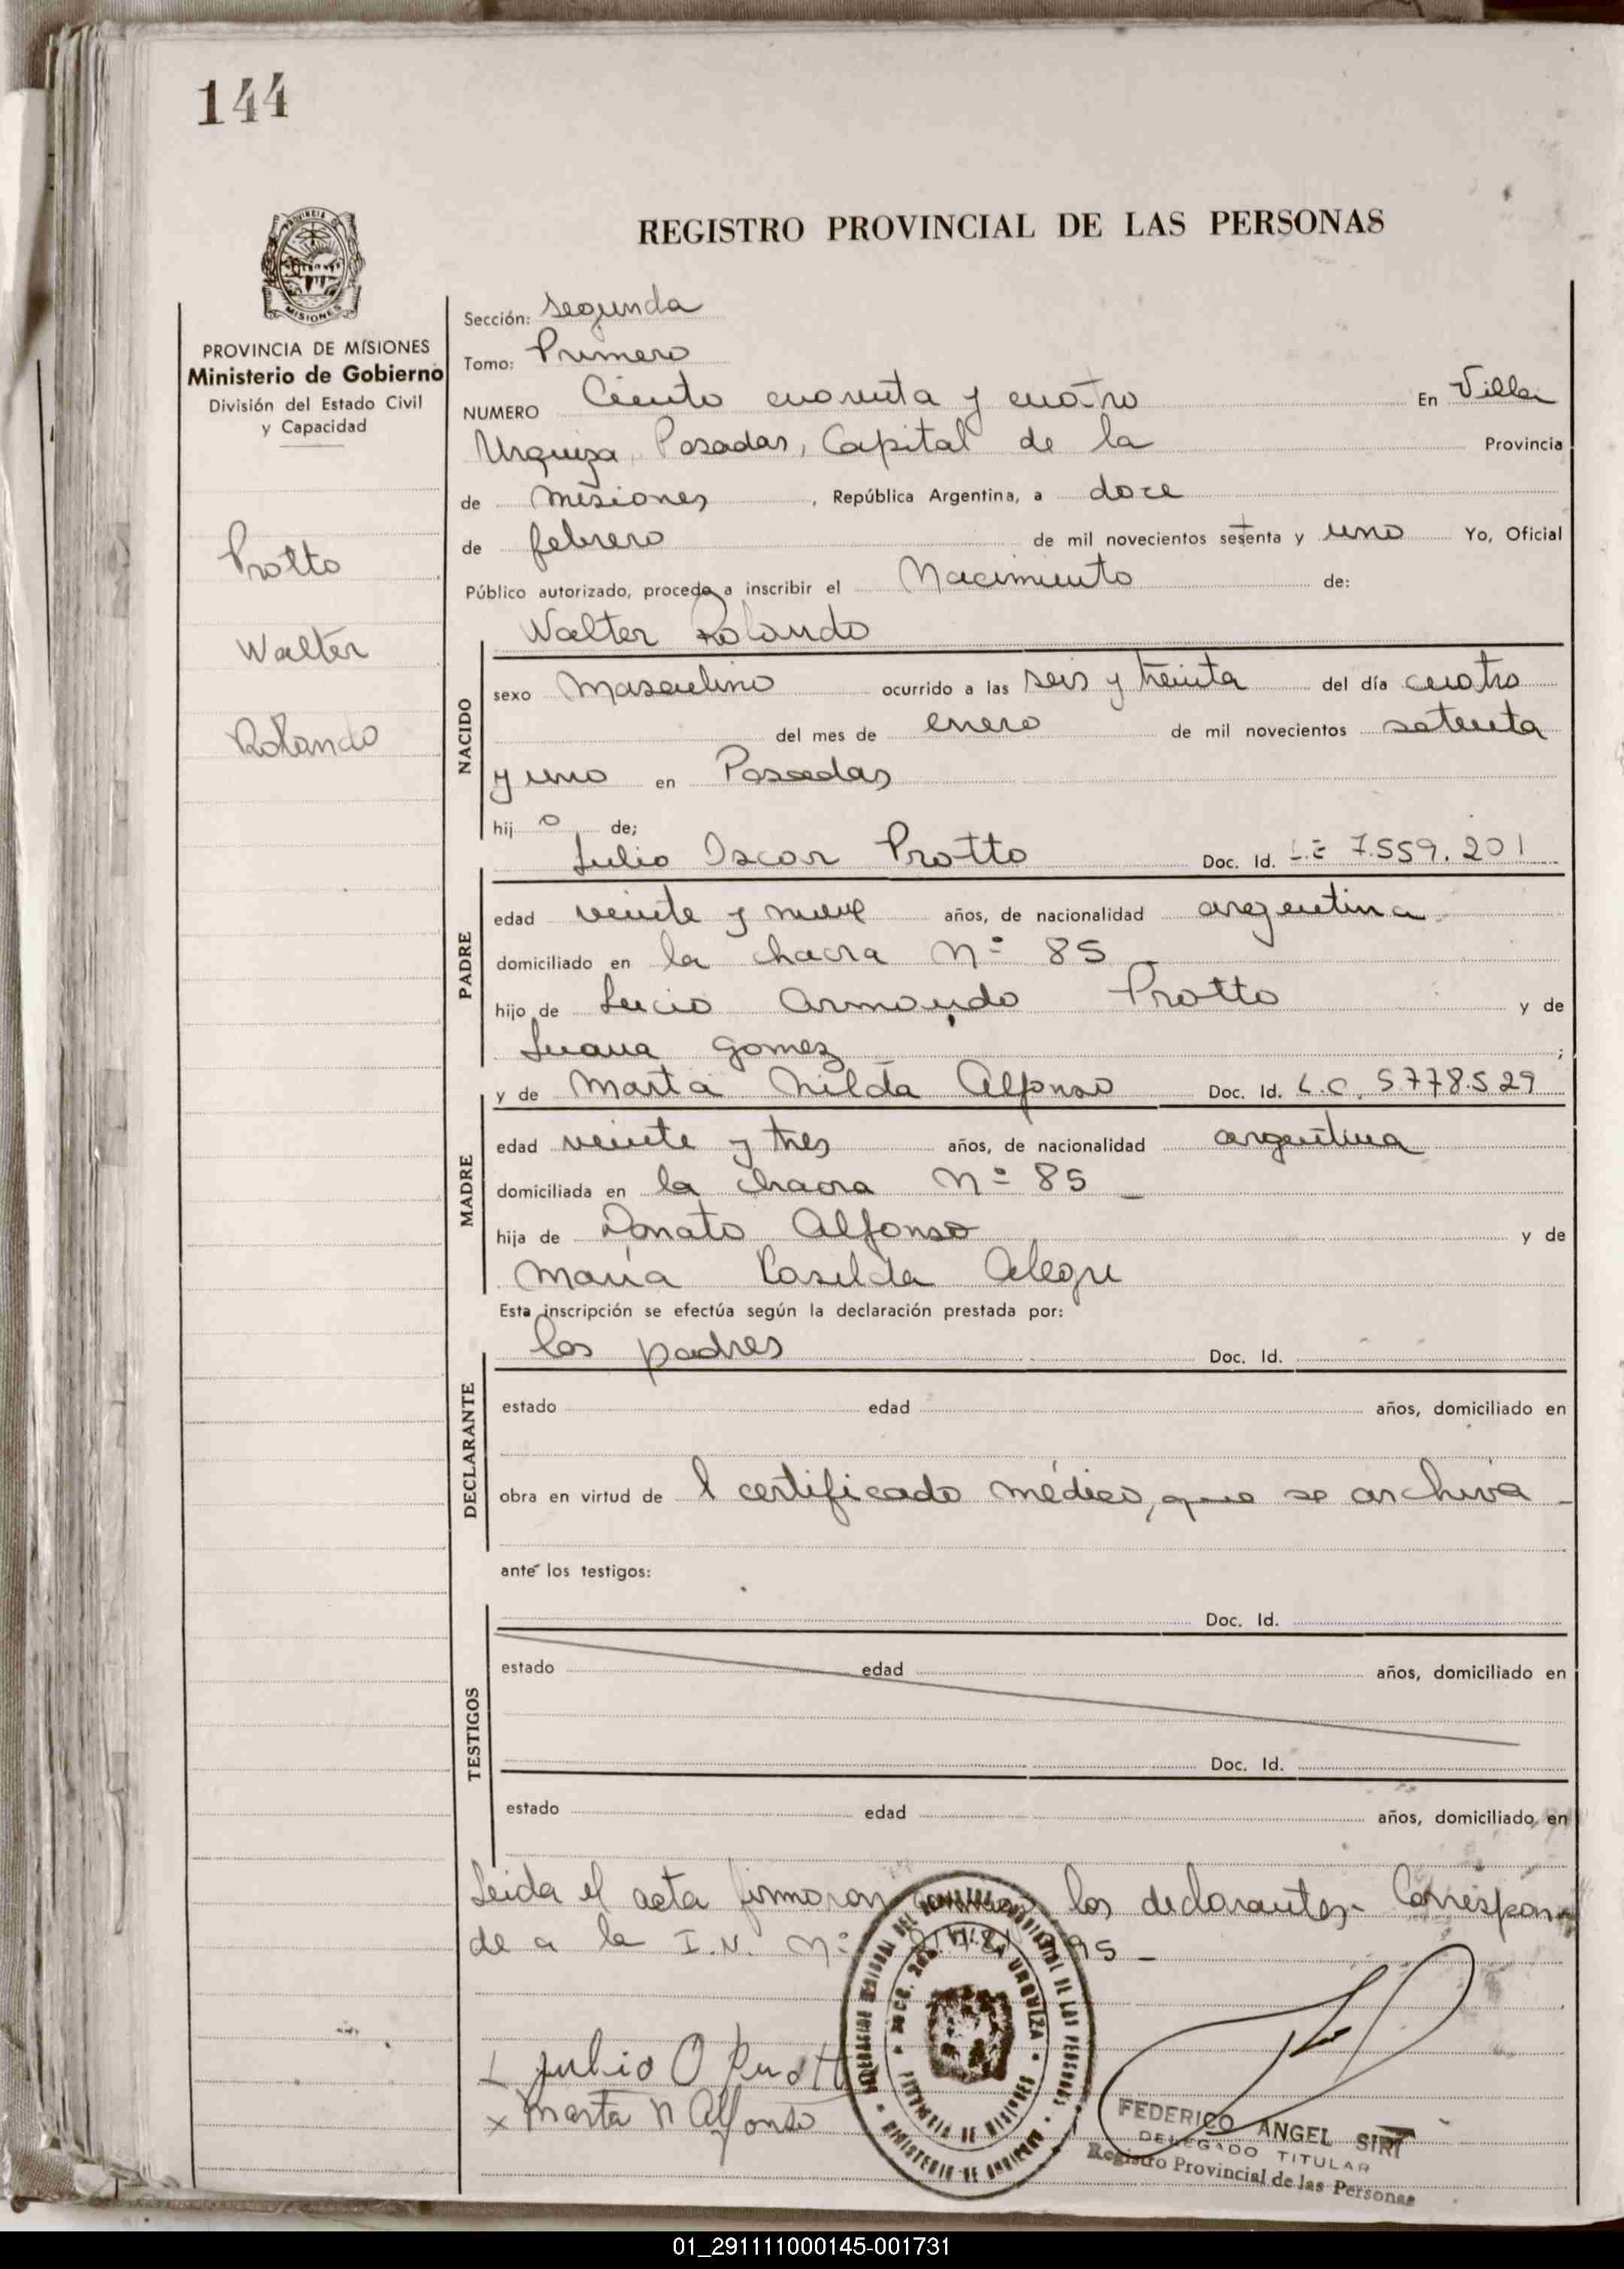 144
REGISTRO PROVINCIAL DE LAS PERSONAS
MISIONES
PROVINCIA DE MISIONES
Ministerio de Gobierno
División del Estado Civil
y Capacidad
Protto
Walter
Rolando
Sección: segunda
Tomo: Primero
NUMERO Ciento cuarenta y cuatro En Villa
Urquiza, Posadas, Capital de la Provincia
de misiones, República Argentina, a doce
de febrero de mil novecientos setenta y uno Yo, Oficial
Público autorizado, procedo a inscribir el Nacimiento de:
Walter Rolando
NACIDO
sexo Masculino ocurrido a las seis y treinta del día cuatro
del mes de enero de mil novecientos setenta
y uno en Posadas
hijo de;
Julio Oscar Protto Doc. Id. L.E 7.559.201
PADRE
edad veinte y nueve años, de nacionalidad argentina
domiciliado en la chacra Nº 85
hijo de Lucio Armando Protto y de
Juana Gomez;
y de Marta Nilda Alfonso Doc. Id. L.C. 5.778.529
MADRE
edad veinte y tres años, de nacionalidad argentina
domiciliada en la chacra Nº 85 _
hija de Donato Alfonso y de
María Casilda Alegre
Esta inscripción se efectúa según la declaración prestada por:
los padres Doc. Id.
DECLARANTE
estado edad años, domiciliado en
obra en virtud de l certificado médico, que se archiva -
ante los testigos:
Doc. Id.
TESTIGOS
estado edad años, domiciliado en
Doc. Id.
estado edad años, domiciliado en
Leida el acta firmaron los declarantes- Correspon-
de a la I.N. Nº
x Julio O Protto
x Marta N Alfonso
VILLA URQUIZA
PROVINCIA DE MISIONES
MINISTERIO DE GOBIERNO
FEDERICO ANGEL SIRI
DELEGADO TITULAR
Registro Provincial de las Personas
01_291111000145-001731